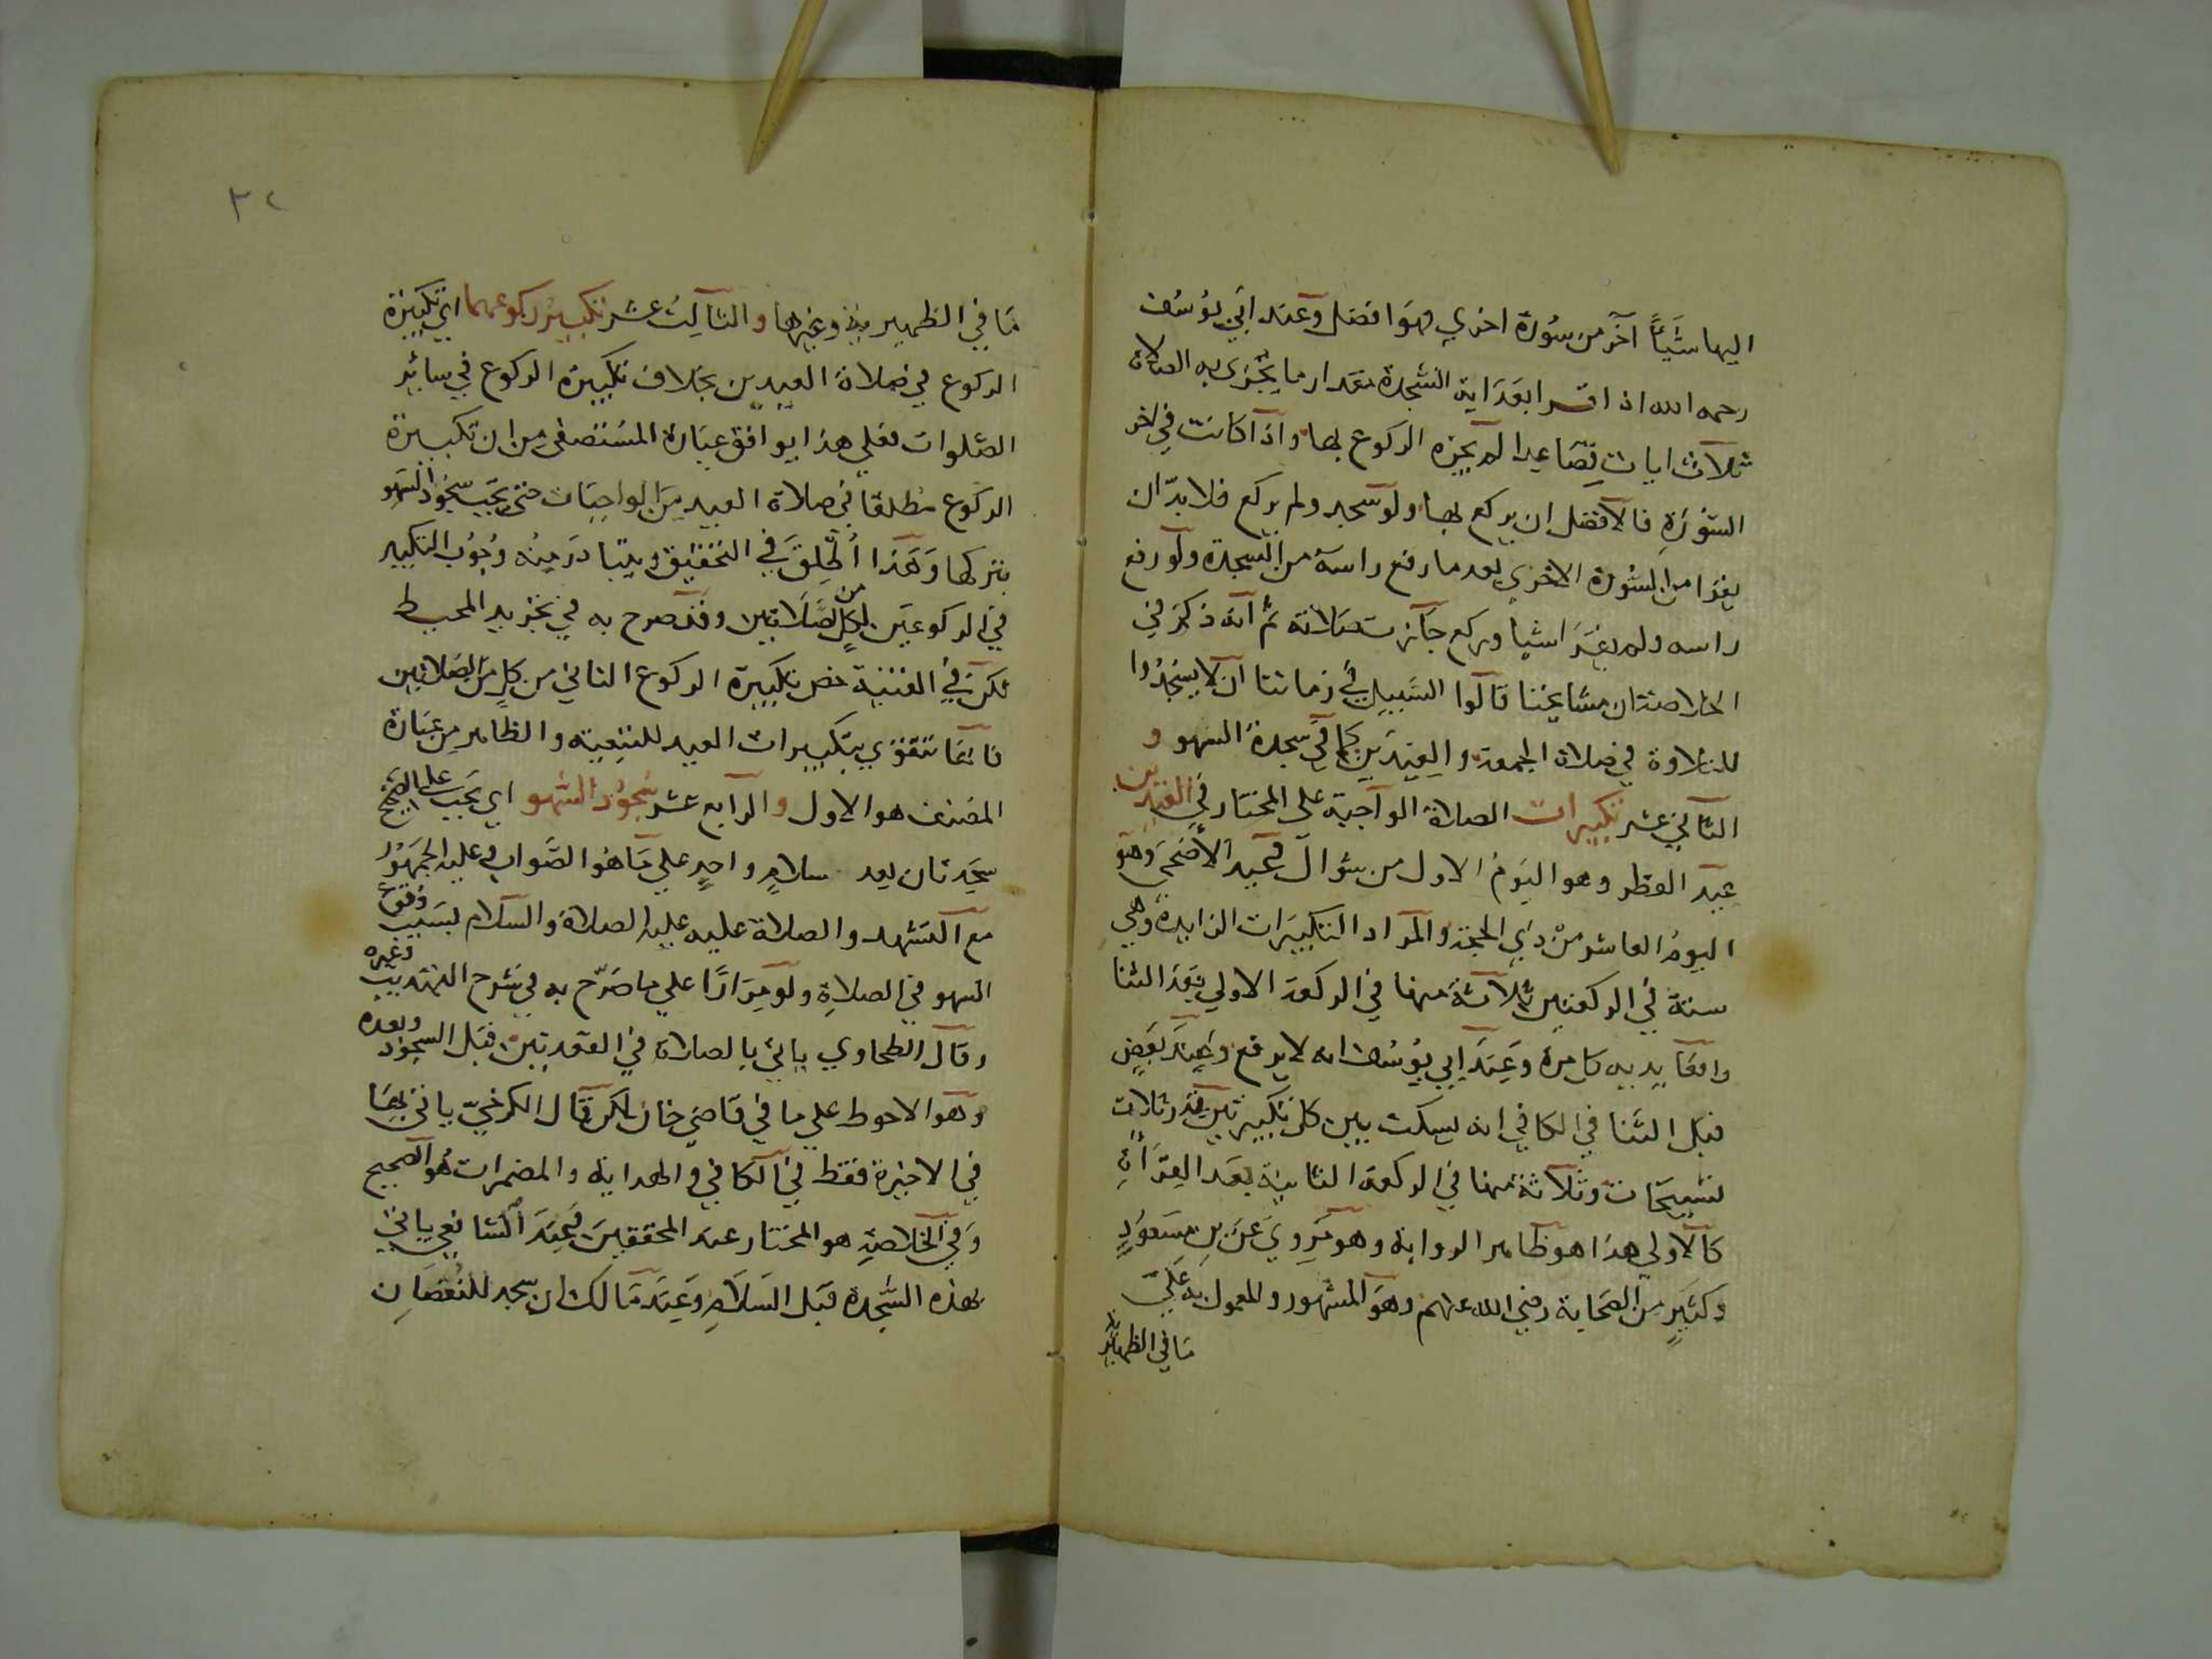 اليها شيئاً آخر من سورة اخري فهو افضل وعند ابي يوسف
رحمه الله اذا قرا بعد اية السجدة مقدار ما يجزي به الصلاة
ثلاث ايات فصاعدا لم يجزه الركوع بها واذا كانت في اخر
السورة فالافضل ان يركع بها ولو سجد ولم يركع فلا بد ان
يقرا من السورة الاخري بعد ما رفع راسه من السجدة ولو رفع
راسه ولم يقرا شيا وركع جازت صلاته ثم انه ذكر في
الخلاصة ان مشايخنا قالوا السبيل في زماننا ان لا يسجدوا
للتلاوة في صلاة الجمعة والعيدين كما في سجدة السهو و
الثاني عشر تكبيرات الصلاة الواجبة علي المختار في العيدين
عيد الفطر وهو اليوم الاول من شوال وعيد الاضحي وهو
اليوم العاشر من ذي الحجة والمراد التكبيرات الزايدة وهي
ستة في الركعتين ثلاثة منها في الركعة الاولي بعد الثنا
رافعا يديه كل مرة وعند ابي يوسف انه لا يرفع وعند بعض
قبل الثنا في الكافي انه يسكت بين كل تكبيرتين قدر ثلاث
تسبيحات وثلاثة منها في الركعة الثانية بعد القرآن
كالاولي هذا هو ظاهر الرواية وهو مروي عن بن مسعود
وكثير من الصحابة رضي الله عنهم وهو المشهور والمعمول به علي
ما في الظهيرية
٣٢
ما في الظهيرية وغيرها والثالث عشر تكبير ركوعهما اي تكبيرة
الركوع في صلاة العيدين بخلاف تكبيرة الركوع في سائر
الصلوات فعلي هذا يوافق عبارة المستصفي من ان تكبيرة
الركوع مطلقا في صلاة العيد من الواجبات حتي يجب سجود السهو
بتركها وهذا أطلق في التحقيق ويتبادر منه وجوب التكبير
في الركوعين من كل الصلاتين وقد صرح به في تجريد المحيط
لكن في القنية خص تكبيرة الركوع الثاني من كل من الصلاتين
فانها تتقوي بتكبيرات العيد للتبعية والظاهر من عبارة
المصنف هو الاول والرابع عشر سجود السهو اي يجب علي الصحيح
سجدتان بعد سلام واحد علي ما هو الصواب وعليه الجمهور
مع التشهد والصلاة عليه عليه الصلاة والسلام بسبب وقوع
السهو في الصلاة ولو مرارًا علي ما صرح به في شرح التهذيب وغيره
وقال الطحاوي ياتي بالصلاة في القعدتين قبل السجود وبعده
وهو الاحوط علي ما في قاضي خان لكن قال الكرخي ياتي بها
في الاخيرة فقط في الكافي والهداية والمضمرات هو الصحيح
وفي الخلاصة هو المختار عند المحققين وعند الشافعي ياتي
بهذه السجدة قبل السلام وعند مالك ان سجد للنقصان